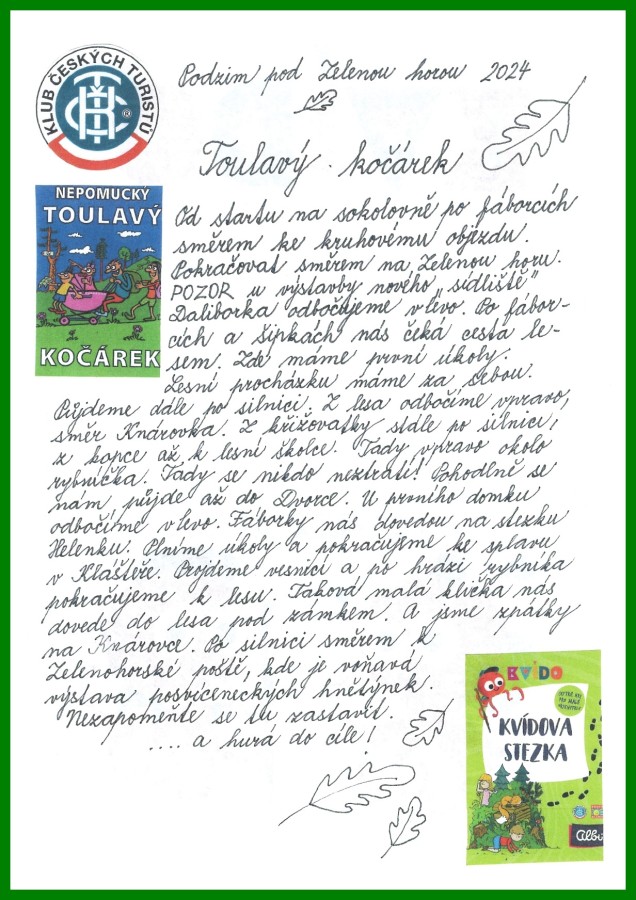 KLUB ČESKÝCH TURISTŮ
KČT
®
Podzim pod Zelenou horou 2024
Toulavý kočárek
NEPOMUCKÝ
TOULAVÝ
KOČÁREK
Od startu na sokolovně po fáborcích
směrem ke kruhovému objezdu.
Pokračovat směrem na Zelenou horu.
POZOR u výstavby nového "sídliště"
Daliborka odbočujeme vlevo. Po fábor-
cích a šipkách nás čeká cesta le-
sem. Zde máme první úkoly.
Lesní procházku máme za sebou.
Půjdeme dále po silnici. Z lesa odbočíme vpravo,
směr Knárovka. Z křižovatky stále po silnici,
z kopce až k lesní školce. Tady vpravo okolo
rybníčka. Tady se nikdo neztratí! Pohodlně se
nám půjde až do Dvorce. U prvního domku
odbočíme vlevo. Fáborky nás dovedou na stezku
Helenku. Plníme úkoly a pokračujeme ke splavu
v Klášteře. Projdeme vesnicí a po hrázi rybníka
pokračujeme k lesu. Taková malá klička nás
dovede do lesa pod zámkem. A jsme zpátky
na Knárovce. Po silnici směrem k
Zelenohorské poště, kde je voňavá
výstava posvíceneckých hnětýnek.
Nezapomeňte se tu zastavit.
.... a hurá do cíle!
KVÍDO
KVÍDOVA
STEZKA
Albi